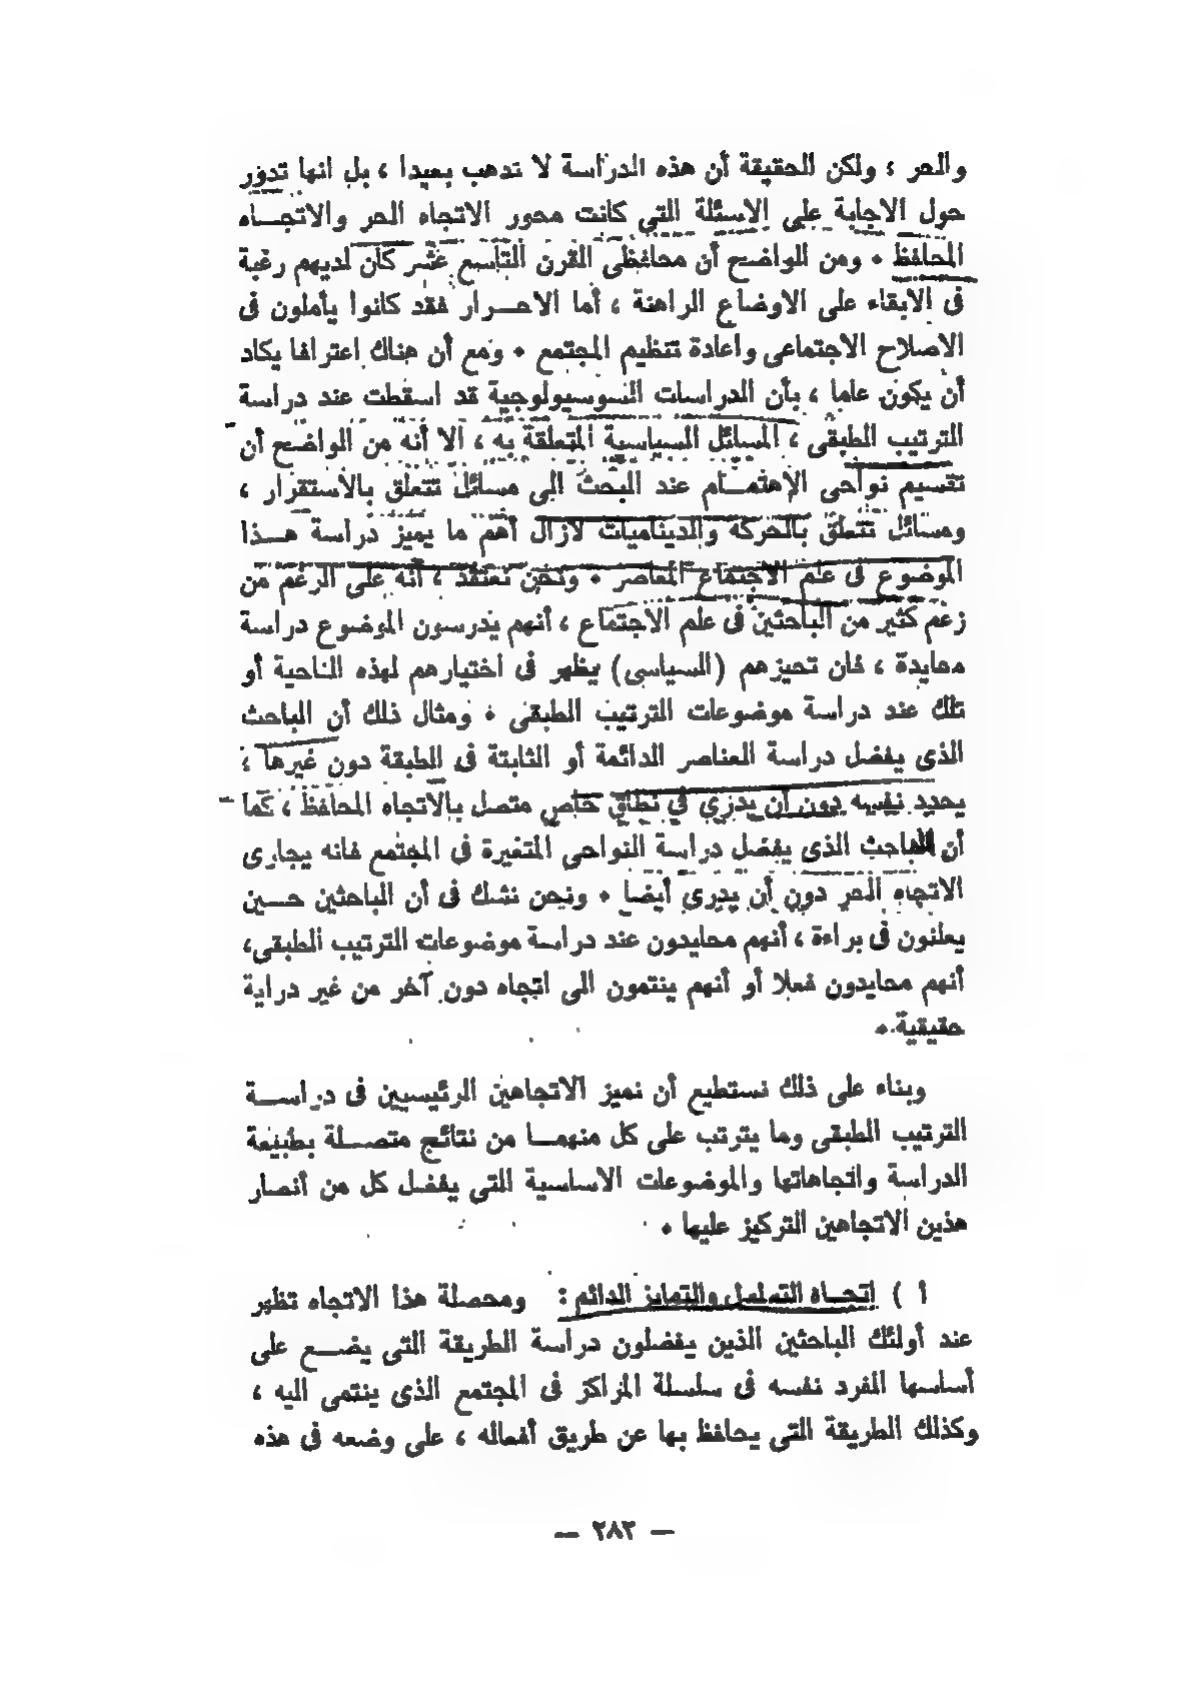 والحر ، ولكن الحقيقة أن هذه الدراسة لا تذهب بعيدا ، بل انها تدور
حول الاجابة على الاسئلة التي كانت محور الاتجاه الحر والاتجـــاه
المحافظ • ومن الواضح أن محافظى القرن التاسع عشر كان لديهم رغبة
فى الابقاء على الاوضاع الراهنة ، أما الاحـــرار فقد كانوا يأملون فى
الاصلاح الاجتماعى واعادة تنظيم المجتمع • ومع أن هناك اعترافا يكاد
أن يكون عاما ، بأن الدراسات السوسيولوجية قد اسقطت عند دراسة
الترتيب الطبقى ، المسائل السياسية المتعلقة به ، الا أنه من الواضح أن
تقسيم نواحى الاهتمـــام عند البحث الى مسائل تتعلق بالاستقرار ،
ومسائل تتعلق بالحركة والديناميات لازال أهم ما يميز دراسة هـــذا
الموضوع فى علم الاجتماع المعاصر • ونحن نعتقد ، أنه على الرغم من
زعم كثير من الباحثين فى علم الاجتماع ، أنهم يدرسون الموضوع دراسة
محايدة ، فان تحيزهم (السياسى) يظهر فى اختيارهم لهذه الناحية أو
تلك عند دراسة موضوعات الترتيب الطبقى • ومثال ذلك أن الباحث
الذى يفضل دراسة العناصر الدائمة أو الثابتة فى الطبقة دون غيرها ،
يحدد نفسه دون أن يدرى في نطاق خاص متصل بالاتجاه المحافظ ، كما
أن الباحث الذى يفضل دراسة النواحى المتغيرة فى المجتمع فانه يجارى
الاتجاه الحر دون أن يدرى أيضا • ونحن نشك فى أن الباحثين حـــين
يعلنون فى براءة ، أنهم محايدون عند دراسة موضوعات الترتيب الطبقى،
أنهم محايدون فعلا أو أنهم ينتمون الى اتجاه دون آخر من غير دراية
حقيقية •
وبناء على ذلك نستطيع أن نميز الاتجاهين الرئيسيين فى دراســـة
الترتيب الطبقى وما يترتب على كل منهمـــا من نتائج متصـــلة بطبيعة
الدراسة واتجاهاتها والموضوعات الاساسية التى يفضل كل من أنصار
هذين الاتجاهين التركيز عليها •
أ ) اتجـــاه التسلسل والتمايز الدائم : ومحصلة هذا الاتجاه تظهر
عند أولئك الباحثين الذين يفضلون دراسة الطريقة التى يضـــع على
أساسها الفرد نفسه فى سلسلة المراكز فى المجتمع الذى ينتمى اليه ،
وكذلك الطريقة التى يحافظ بها عن طريق أفعاله ، على وضعه فى هذه
— ٢٨٢ —